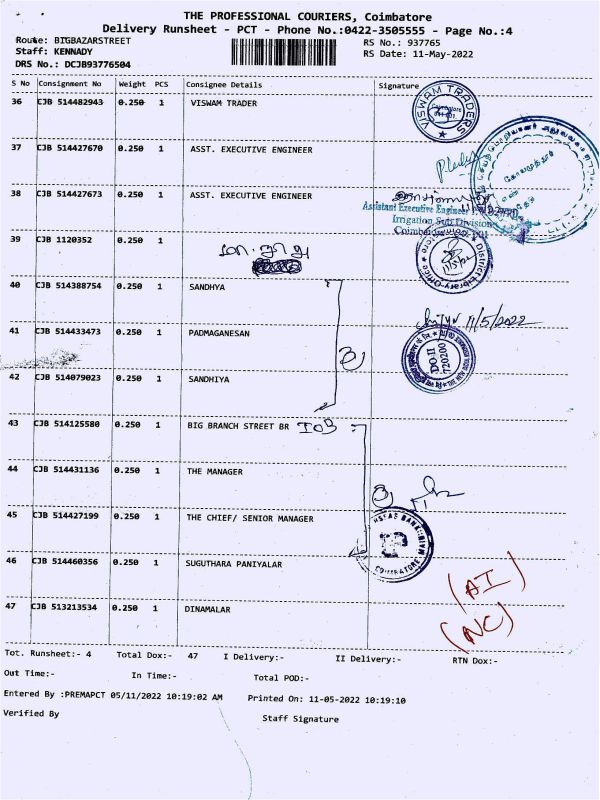 THE PROFESSIONAL COURIERS, Coimbatore
Delivery Runsheet - PCT - Phone No.:0422-3505555 - Page No.:4
Route: BIGBAZARSTREET RS No.: 937765
Staff: KENNADY RS Date: 11-May-2022
DRS No.: DCJB93776504
S No Consignment No Weight PCS Consignee Details Signature
36 CJB 514482943 0.250 1 VISWAM TRADER
VISWAM TRADERS
Coimbatore
37 CJB 514427670 0.250 1 ASST. EXECUTIVE ENGINEER
38 CJB 514427673 0.250 1 ASST. EXECUTIVE ENGINEER
Assistant Executive Engineer
Irrigation Sub Division
39 CJB 1120352 0.250 1
District Library Office
40 CJB 514388754 0.250 1 SANDHYA
11/5/2022
41 CJB 514433473 0.250 1 PADMAGANESAN
DO-II
720200
42 CJB 514079023 0.250 1 SANDHIYA
3
43 CJB 514125580 0.250 1 BIG BRANCH STREET BR IOB
44 CJB 514431136 0.250 1 THE MANAGER
3
45 CJB 514427199 0.250 1 THE CHIEF/ SENIOR MANAGER
COIMBATORE
46 CJB 514460356 0.250 1 SUGUTHARA PANIYALAR
(AI)
47 CJB 513213534 0.250 1 DINAMALAR
(NC)
Tot. Runsheet:- 4 Total Dox:- 47 I Delivery:- II Delivery:- RTN Dox:-
Out Time:- In Time:- Total POD:-
Entered By :PREMAPCT 05/11/2022 10:19:02 AM Printed On: 11-05-2022 10:19:10
Verified By Staff Signature